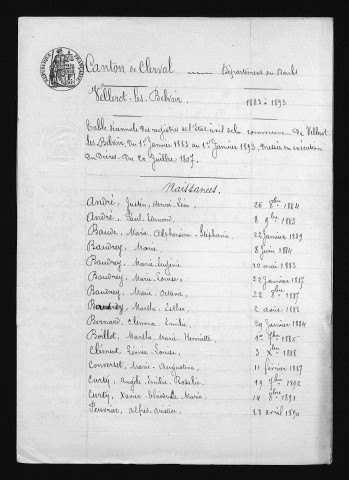 Canton de Clerval Département du Doubs
Vellerot-les-Belvoir. 1883 à 1893
Table décennale des registres de l'état civil de la commune de Vellerot
les Belvoir, du 1er Janvier 1883 au 1er Janvier 1893, dressée en exécution
du Décret du 20 Juillet 1807.
Naissances.
André, Justin, Henri, Léon, 26 8bre 1884
André, Paul, Edmond, 8 9bre 1883
Baude, Marie, Alphonsine, Stéphanie, 22 Janvier 1889
Baudrey, Marie, 8 Juin 1884
Baudrey, Marie, Eugénie 10 mai 1883
Baudrey, Marie, Louise, 22 Janvier 1887
Baudrey, Marie, Octavie, 22 8bre 1887
Baudrey, Martha, Esther, 2 août 1883
Bernard, Clémence, Emilie, 29 Janvier 1884
Boillot, Martha, Marie, Henriette, 1er 7bre 1885
Clément, Louise, 3 Xbre 1888
Converset, Marie, Augustine, 11 février 1887
Curty, Angèle, Emilie, Rosalie, 19 7bre 1892
Curty, Xavier, Marie, 14 8bre 1891
Feuvrier, Alfred, 28 avril 1890